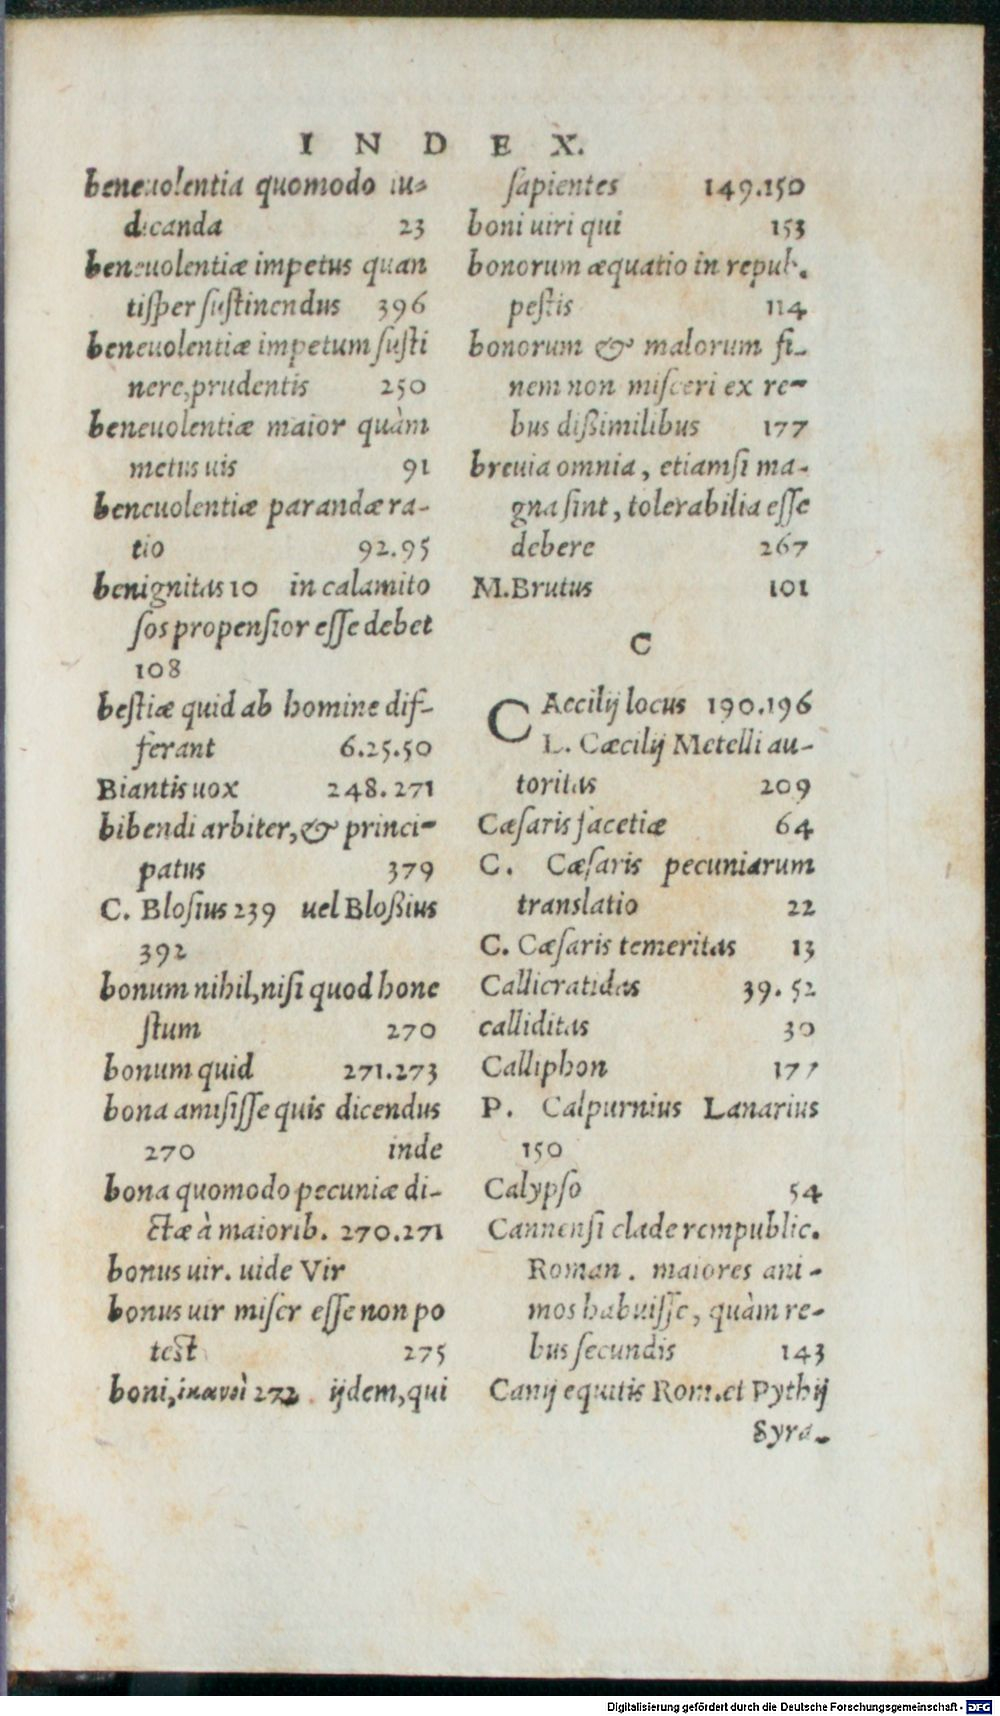 INDEX.
beneuolentia quomodo iu-
dicanda 23
beneuolentiæ impetus quan
tisper sustinendus 396
beneuolentiæ impetum susti
nere, prudentis 250
beneuolentiæ maior quàm
metus uis 91
beneuolentiæ parandæ ra-
tio 92.95
benignitas 10 in calamito
sos propensior esse debet
108
bestiæ quid ab homine dif-
ferant 6.25.50
Biantis uox 248.271
bibendi arbiter, & princi-
patus 379
C. Blosius 239 uel Bloßius
392
bonum nihil, nisi quod hone
stum 270
bonum quid 271.273
bona amisisse quis dicendus
270 inde
bona quomodo pecuniæ di-
ctæ à maiorib. 270.271
bonus uir. uide Vir
bonus uir miser esse non po
test 275
boni, 272 ijdem, qui
sapientes 149.150
boni uiri qui 153
bonorum æquatio in repub.
pestis 114
bonorum & malorum fi-
nem non misceri ex re-
bus dißimilibus 177
breuia omnia, etiamsi ma-
gna sint, tolerabilia esse
debere 267
M. Brutus 101
C
CAecilij locus 190.196
L. Cæcilij Metelli au-
toritas 209
Cæsaris facetiæ 64
C. Cæsaris pecuniarum
translatio 22
C. Cæsaris temeritas 13
Callicratidas 39.52
calliditas 30
Calliphon 177
P. Calpurnius Lanarius
150
Calypso 54
Cannensi clade rempublic.
Roman. maiores ani-
mos habuisse, quàm re-
bus secundis 143
Canij equitis Rom. et Pythij
Syra-
Digitalisierung gefördert durch die Deutsche Forschungsgemeinschaft - DFG